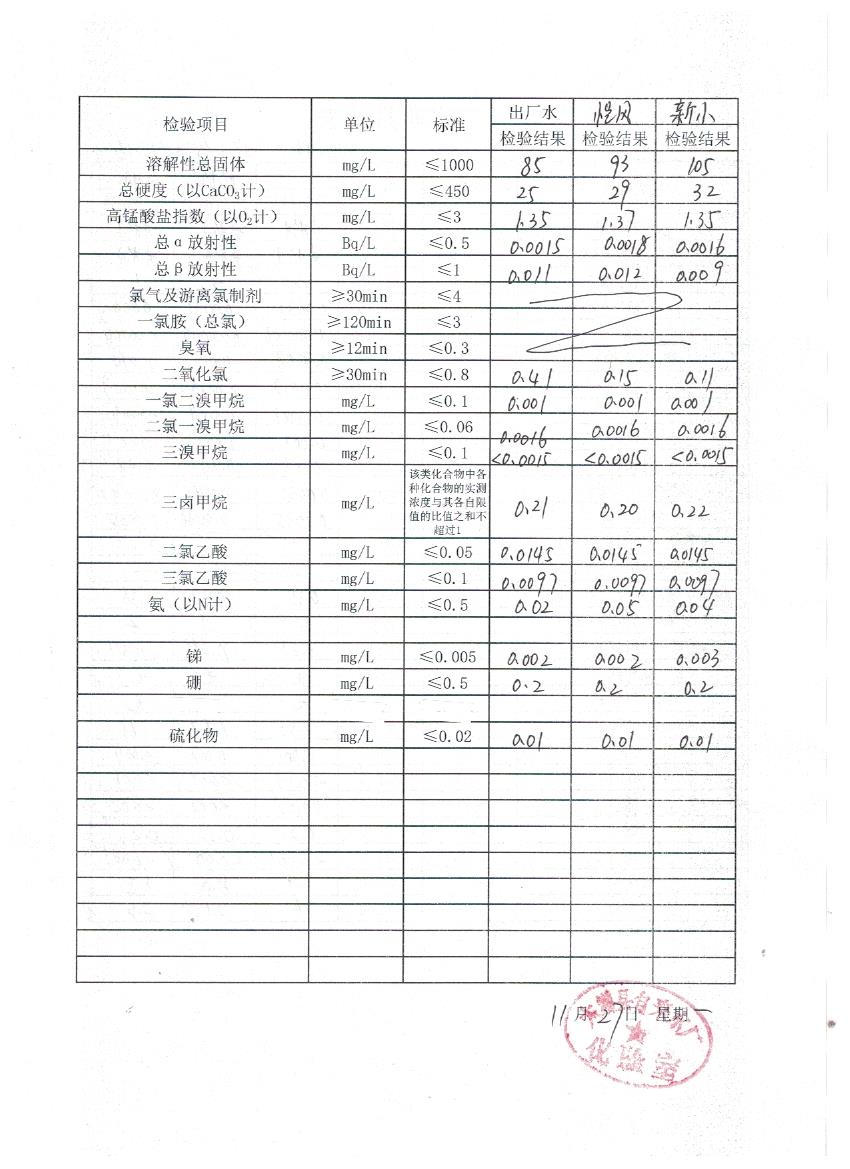 检验项目 单位 标准 出厂水 恒风 新小
检验结果 检验结果 检验结果
溶解性总固体 mg/L ≤1000 85 93 105
总硬度（以CaCO₃计） mg/L ≤450 25 29 32
高锰酸盐指数（以O₂计） mg/L ≤3 1.35 1.37 1.35
总α放射性 Bq/L ≤0.5 0.0015 0.0018 0.0016
总β放射性 Bq/L ≤1 0.011 0.012 0.009
氯气及游离氯制剂 ≥30min ≤4
一氯胺（总氯） ≥120min ≤3
臭氧 ≥12min ≤0.3
二氧化氯 ≥30min ≤0.8 0.41 0.15 0.11
一氯二溴甲烷 mg/L ≤0.1 0.001 0.001 0.001
二氯一溴甲烷 mg/L ≤0.06 0.0016 0.0016 0.0016
三溴甲烷 mg/L ≤0.1 <0.0015 <0.0015 <0.0015
三卤甲烷 mg/L 该类化合物中各
种化合物的实测
浓度与其各自限
值的比值之和不
超过1
0.21 0.20 0.22
二氯乙酸 mg/L ≤0.05 0.0145 0.0145 0.0145
三氯乙酸 mg/L ≤0.1 0.0097 0.0097 0.0097
氨（以N计） mg/L ≤0.5 0.02 0.05 0.04
锑 mg/L ≤0.005 0.002 0.002 0.003
硼 mg/L ≤0.5 0.2 0.2 0.2
硫化物 mg/L ≤0.02 0.01 0.01 0.01
11月27日 星期一
县自来水厂
化验室